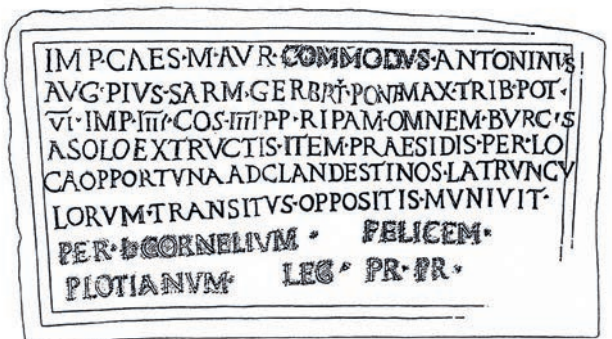 IMP·CAES·M·AVR·COMMODVS·ANTONINVS
AVG·PIVS·SARM·GER·BRIT·PONT·MAX·TRIB·POT·
VI·IMP·IIII·COS·IIII·P·P·RIPAM·OMNEM·BVRGIS
A SOLO EXTRVCTIS·ITEM·PRAESIDIS·PER·LO
CA OPPORTVNA AD CLANDESTINOS·LATRVNCV
LORVM·TRANSITVS·OPPOSITIS·MVNIVIT·
PER·L·CORNELIVM · FELICEM·
PLOTIANVM· LEG · PR·PR·